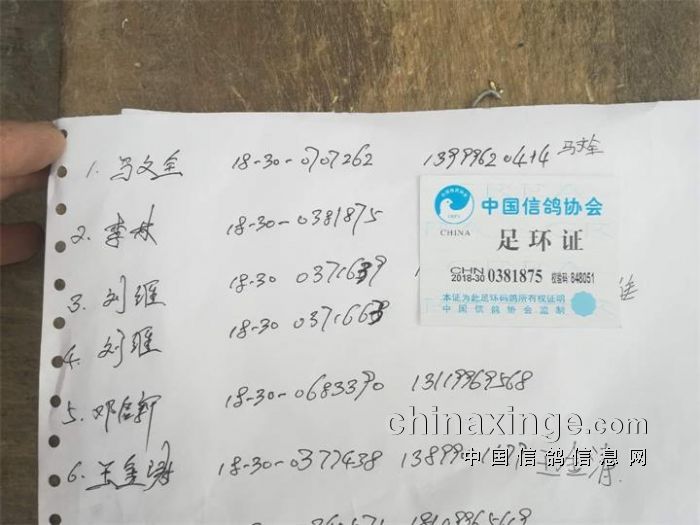 1. 马文全 18-30-0707262 13999620414 马文全
2. 李林 18-30-0381875
中国信鸽协会
CHINA
足环证
CHN
2018-30 0381875 校验码 848051
本证为此足环码鸽所有权证明
中国信鸽协会监制
3. 刘维 18-30 0371639
4. 刘维 18-30 0371663
5. 邓信新 18-30-0683370 13119969568
chinaxinge.com
中国信鸽信息网
6. 王金涛 18-30-0377438 王金涛